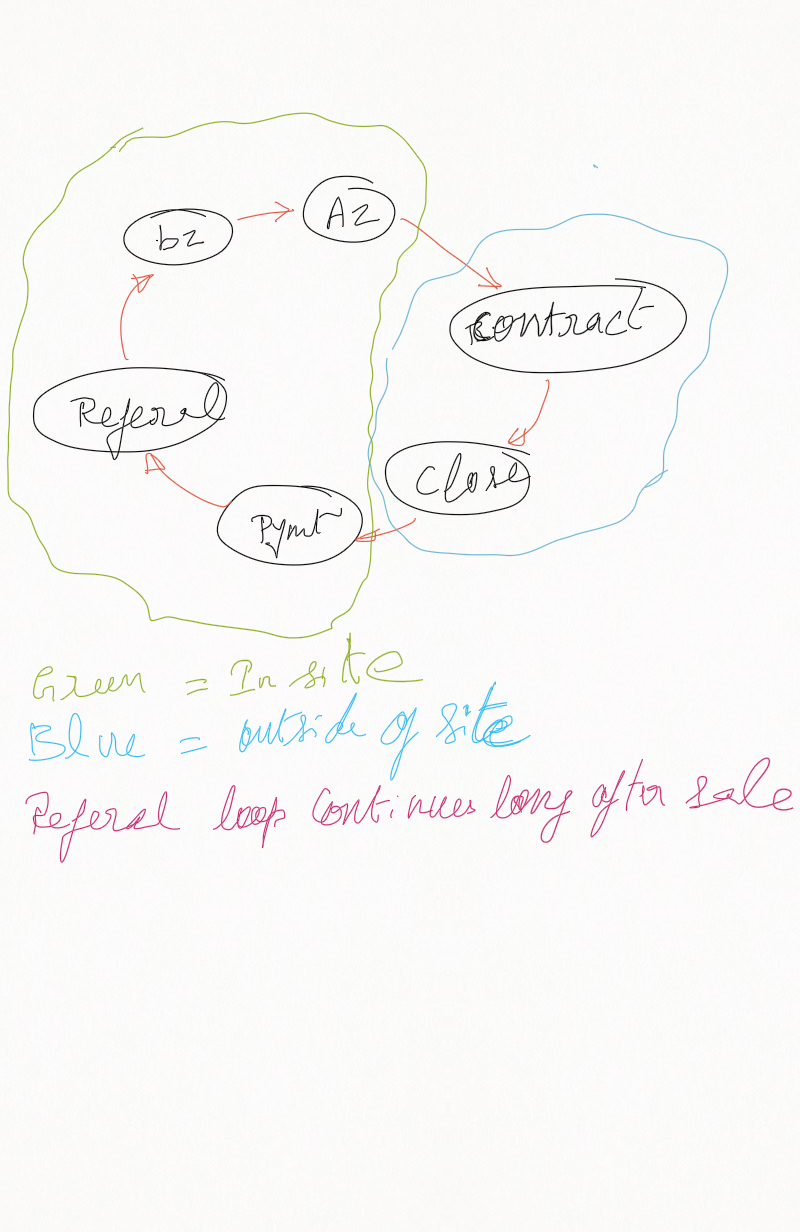 bz
Az
Contract
Referal
Close
Pymt
Green = In site
Blue = outside of site
Referal loop Continues long after sale